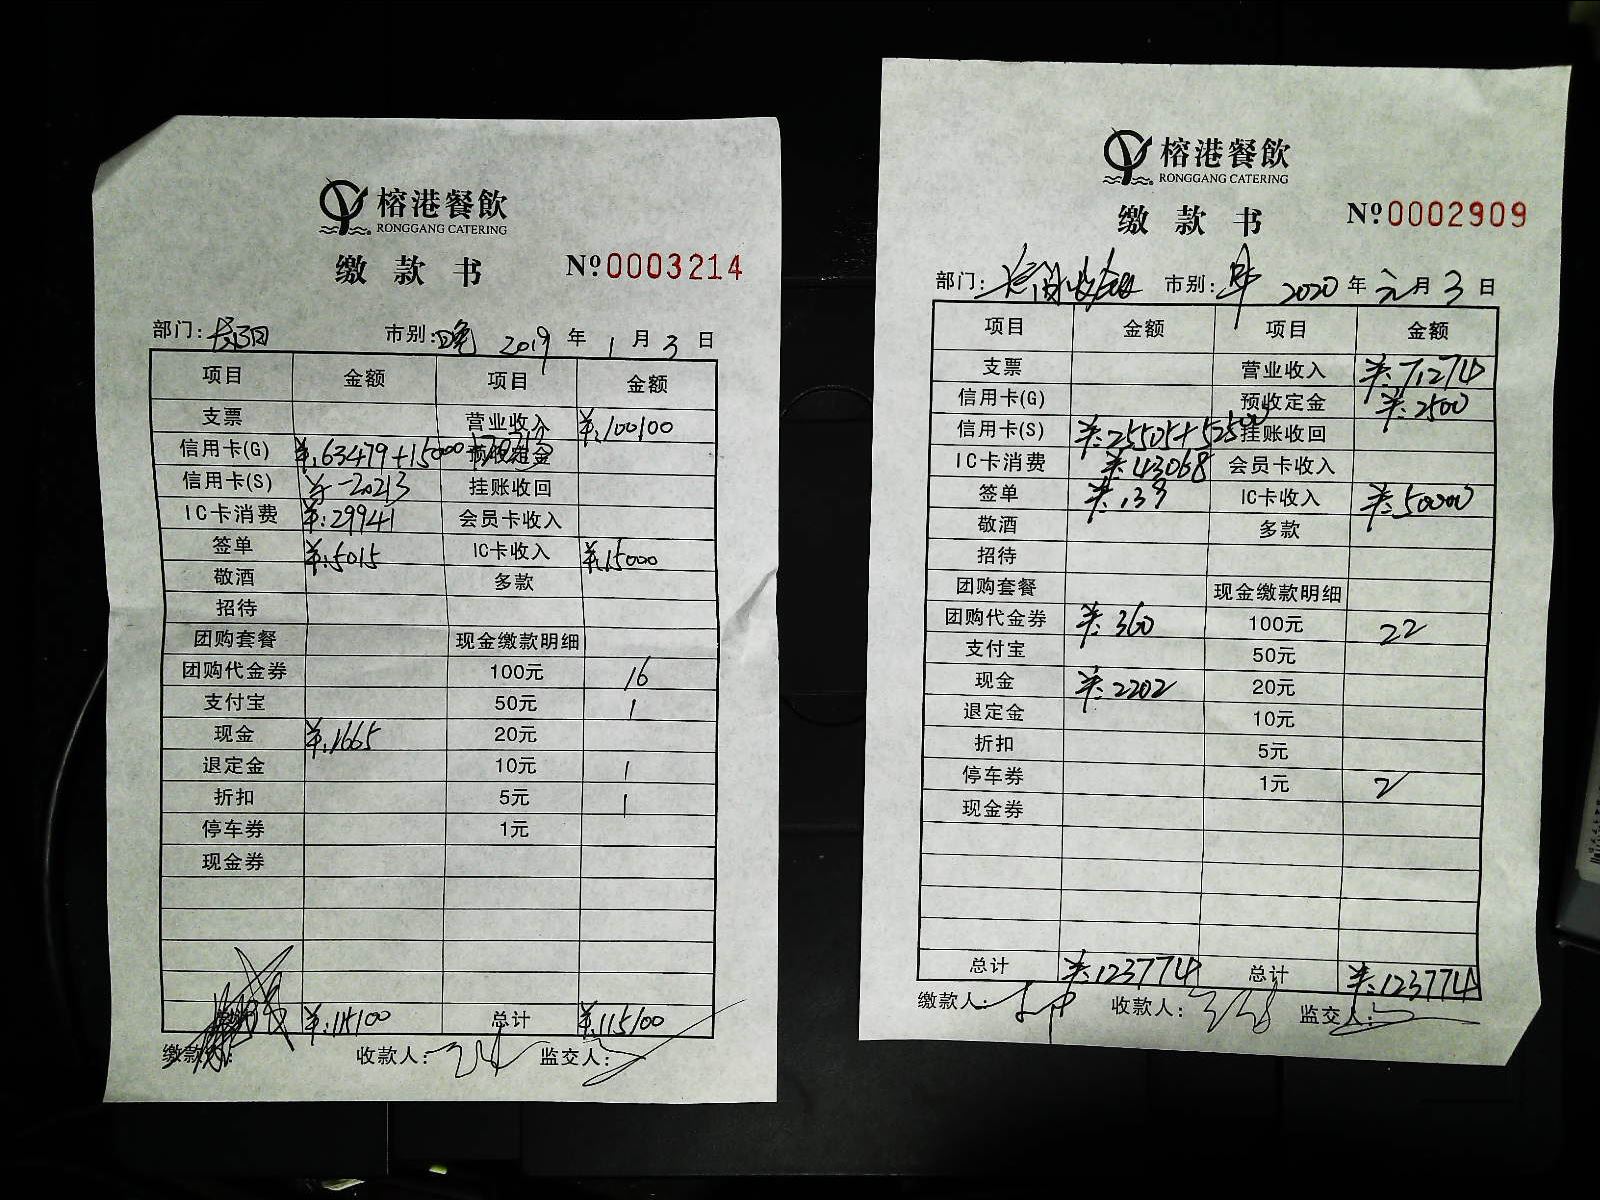 榕港餐飲
RONGGANG CATERING
缴款书 Nº0003214
部门: 市别:晚 2019年1月3日
项目 金额 项目 金额
支票 营业收入 ¥:100100
信用卡(G) ¥:63479+15000 预收定金
信用卡(S) ¥-20213 挂账收回
IC卡消费 ¥:29941 会员卡收入
签单 ¥:5015 IC卡收入 ¥:15000
敬酒 多款
招待
团购套餐 现金缴款明细
团购代金券 100元 16
支付宝 50元 1
现金 ¥:1665 20元
退定金 10元 1
折扣 5元 1
停车券 1元
现金券
¥:115100 总计 ¥:115100
缴款人: 收款人: 监交人:
榕港餐飲
RONGGANG CATERING
缴款书 Nº0002909
部门: 市别: 2020年元月3日
项目 金额 项目 金额
支票 营业收入 ¥:71274
信用卡(G) 预收定金 ¥:2500
信用卡(S) ¥:25505+52500 挂账收回
IC卡消费 ¥:43068 会员卡收入
签单 ¥:139 IC卡收入 ¥:50000
敬酒 多款
招待
团购套餐 现金缴款明细
团购代金券 ¥:360 100元 22
支付宝 50元
现金 ¥:2202 20元
退定金 10元
折扣 5元
停车券 1元 2
现金券
总计 ¥:123774 总计 ¥:123774
缴款人: 收款人: 监交人: